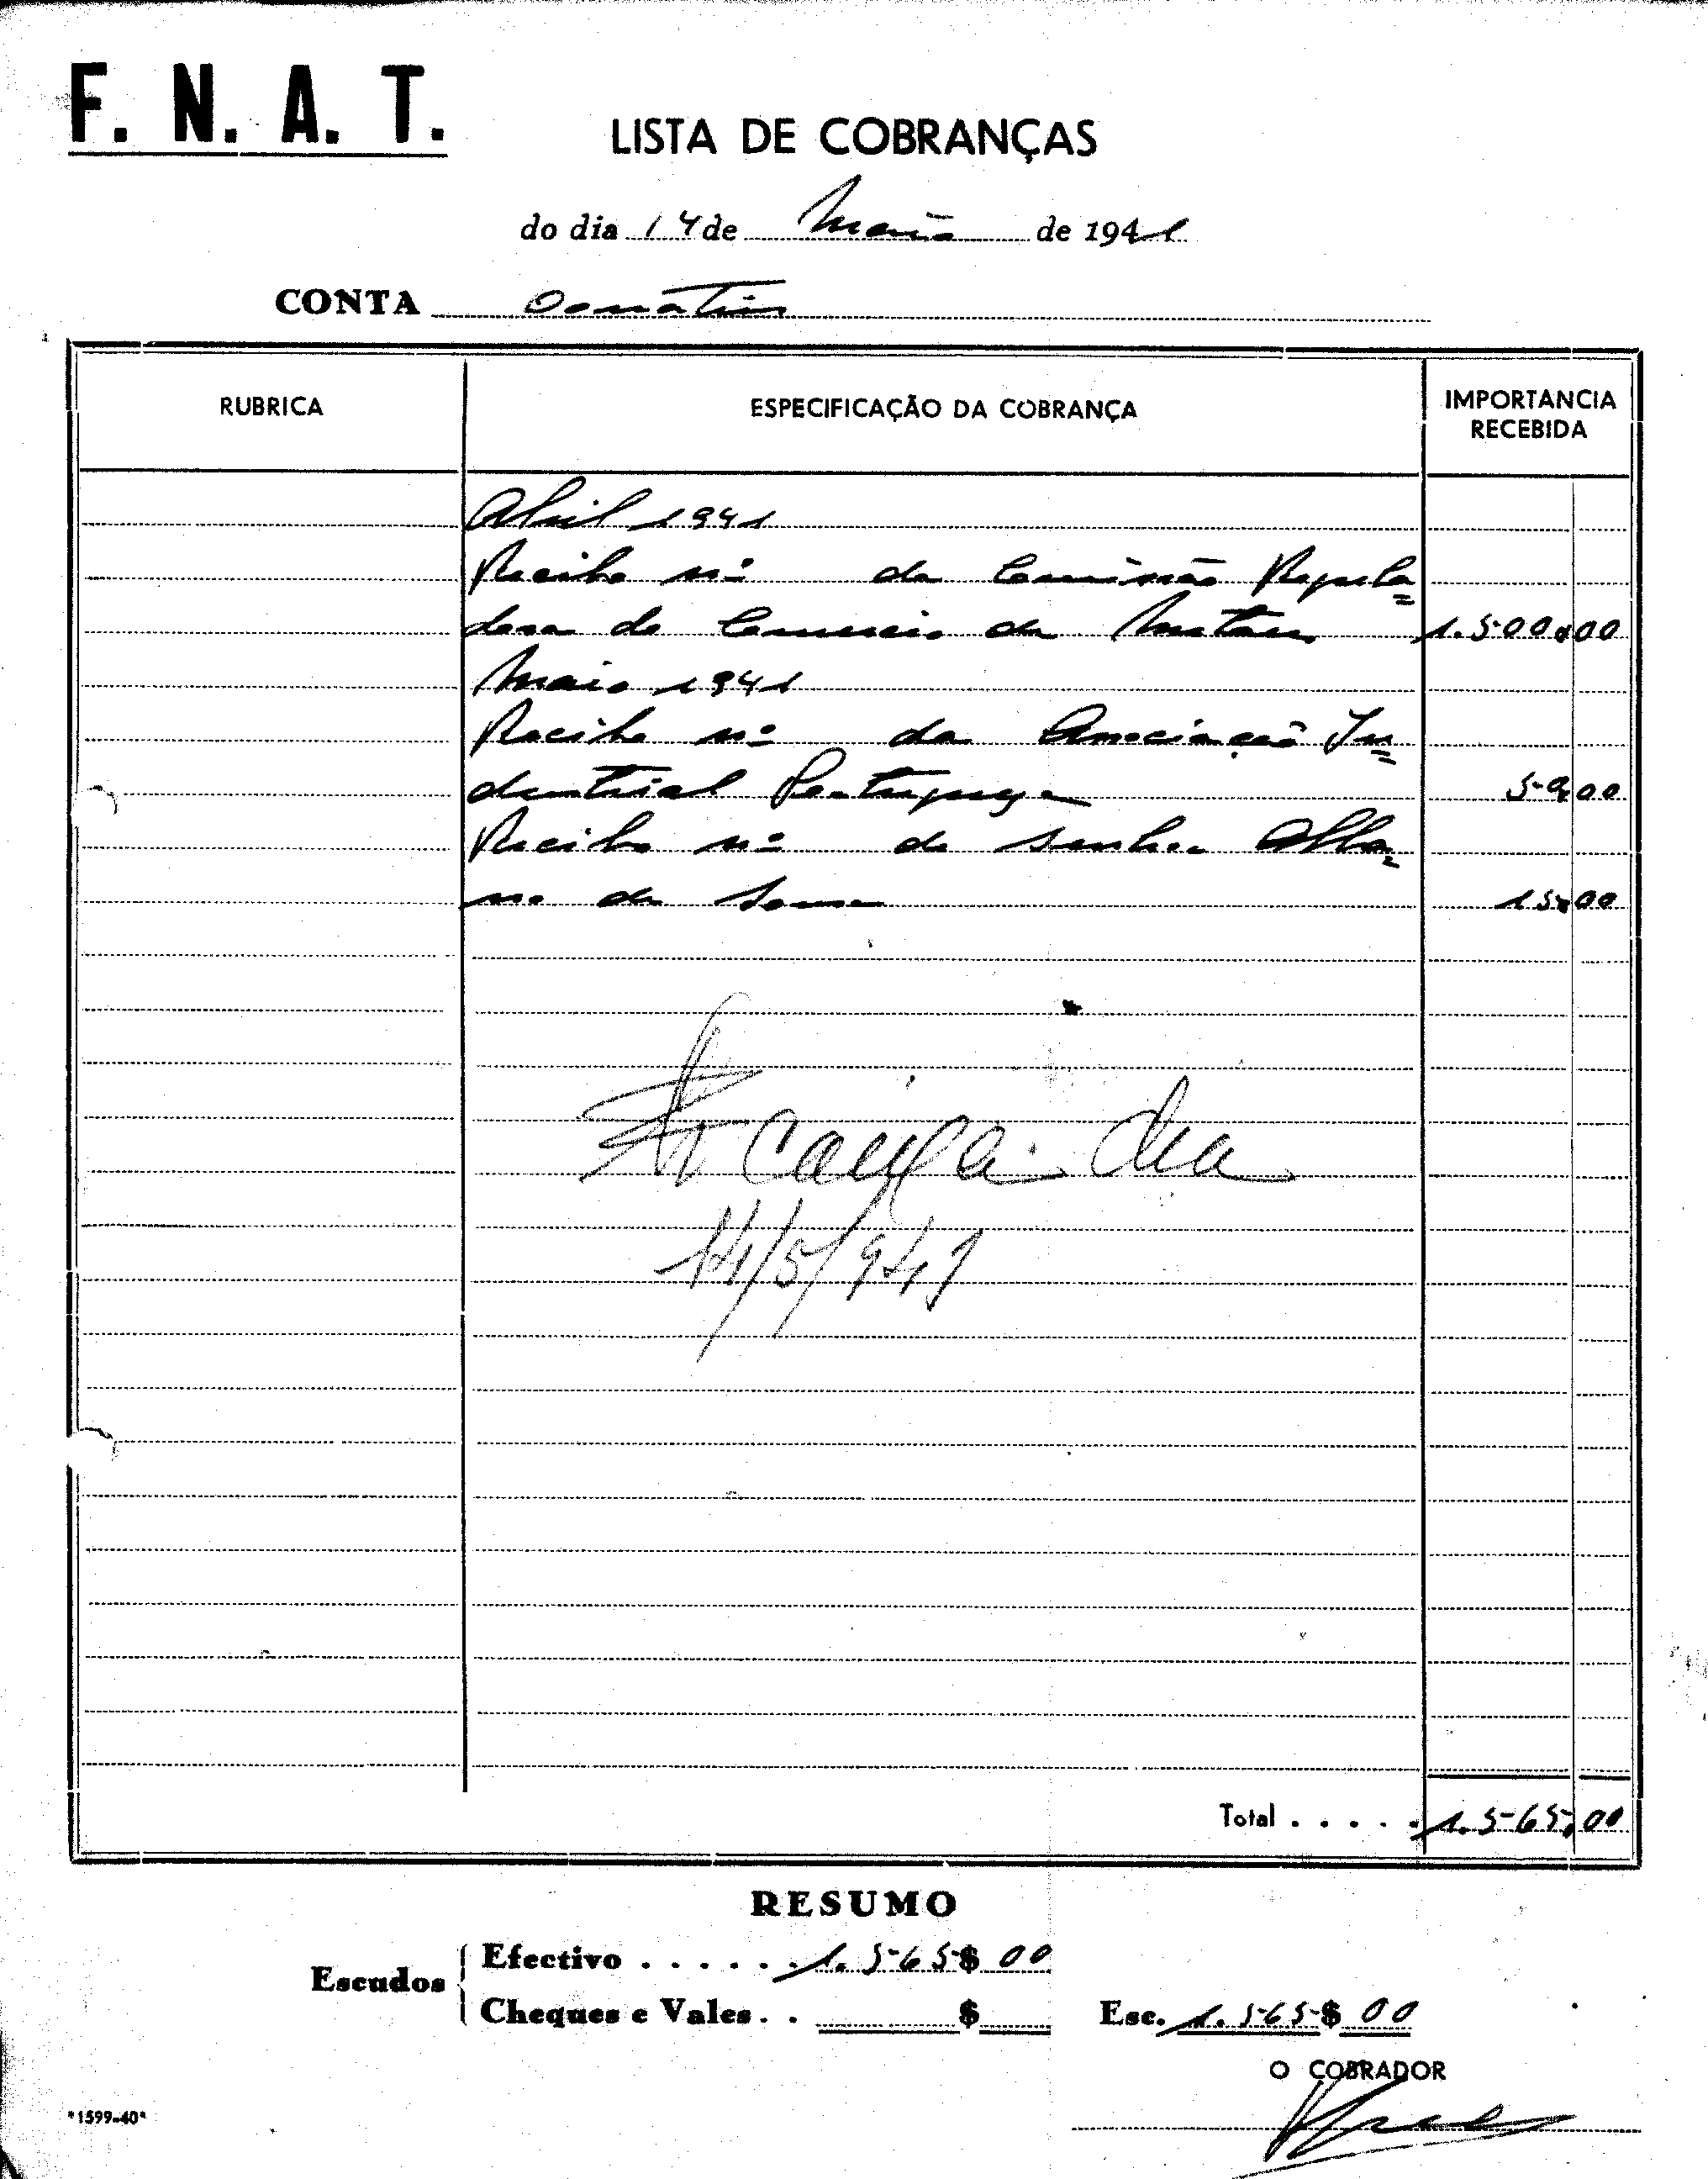 F. N. A. T.
LISTA DE COBRANÇAS
do dia 14 de Maio de 1941
CONTA Donativos
RUBRICA
ESPECIFICAÇÃO DA COBRANÇA
IMPORTANCIA
RECEBIDA
Abril 1941
Recibo nº da Comissão Regula=
dora do Comercio de 1.500$00
Maio 1941
Recibo nº da Associação In=
dustrial Portuguesa 50$00
Recibo nº do senhor Alba=
no de Sousa 15$00
Caixa dia
14/5/941
Total . . . . . 1.565$00
RESUMO
Escudos
Efectivo . . . . . . 1.565$00
Cheques e Vales . . $
Esc. 1.565$00
O COBRADOR
*1599-40*